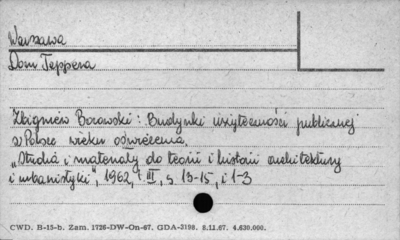 Warszawa
Dom Teppera
Zbigniew Borowski: Budynki użyteczności publicznej
w Polsce wieku oświecenia.
„Studia i materiały do teorii i historii architektury
i urbanistyki", 1962, III, s. 13-15, i 1-3
CWD. B-13-b. Zam. 1726-DW-On-67. GDA-3198. 8.11.67. 4.630.000.